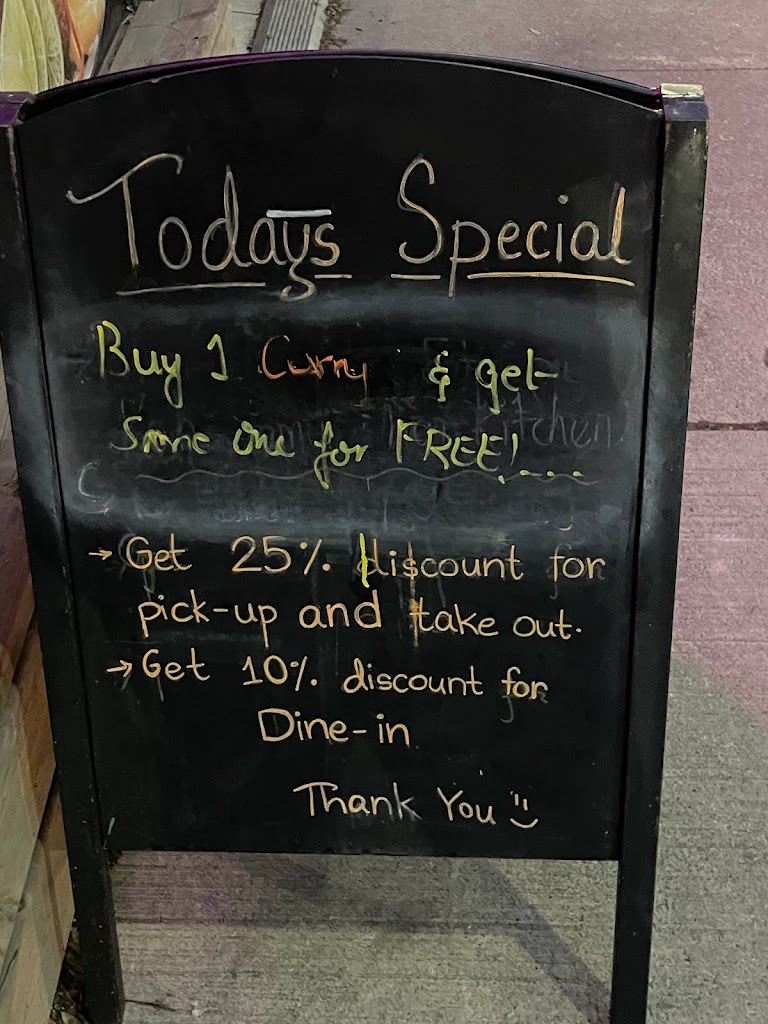 Todays Special
Buy 1 Curry & get
same one for FREE!....
→ Get 25% discount for
pick-up and take out.
→ Get 10% discount for
Dine-in
Thank You